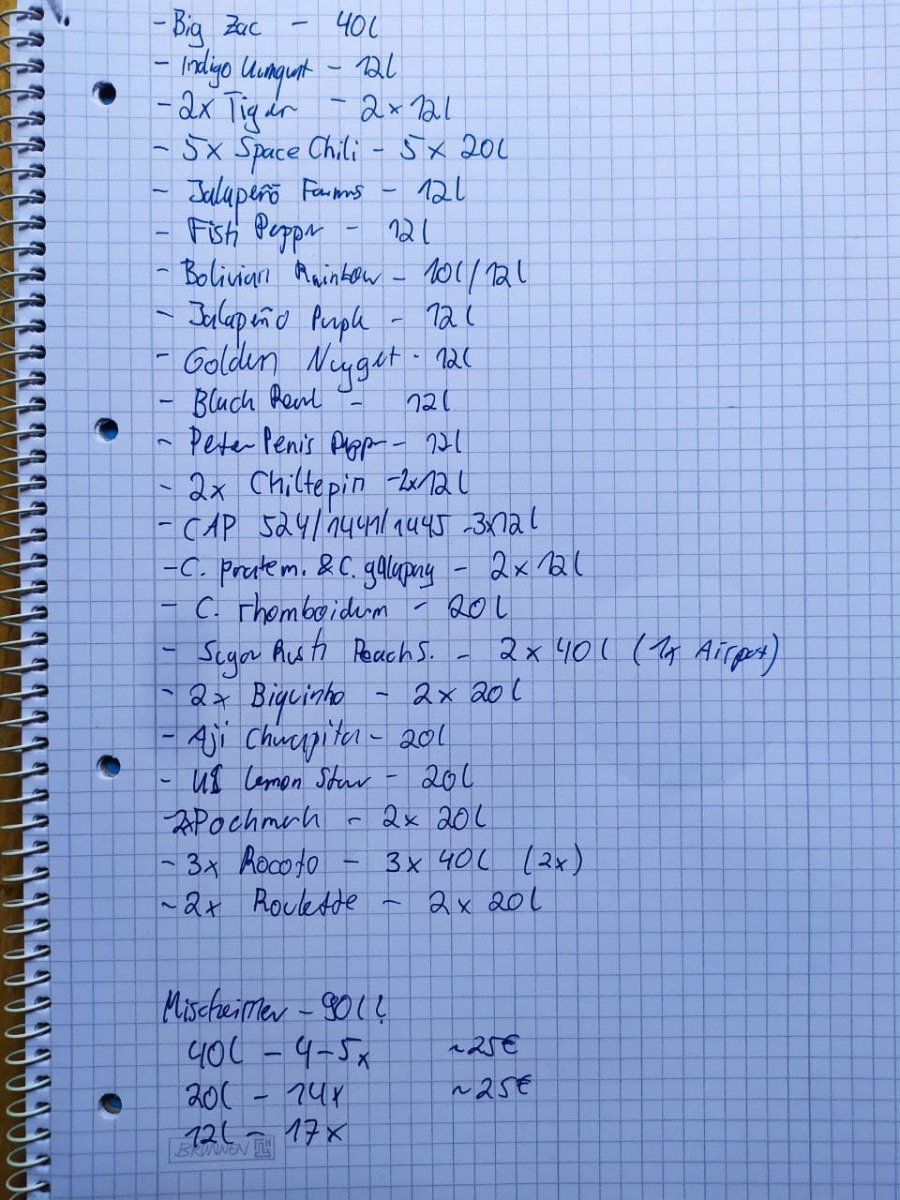 - Big Zac - 40l
- Indigo Kumquat - 12l
- 2x Tiger - 2 x 12l
- 5x Space Chili - 5 x 20l
- Jalapeño Farmers - 12l
- Fish Pepper - 12l
- Bolivian Rainbow - 10l/12l
- Jalapeño Purple - 12l
- Golden Nugget - 12l
- Black Pearl - 12l
- Peter Penis Pepper - 12l
- 2x Chiltepin - 2x12l
- CAP 524/1441/1445 - 3x12l
- C. pratern. & C. galapag - 2 x 12l
- C. rhomboideum - 20l
- Sugar Rush Peach S. - 2 x 40l (1x Airpot)
- 2x Biquinho - 2 x 20l
- Aji Charapita - 20l
- Lemon Starr - 20l
- 2x Pochmerk - 2x 20l
- 3x Rocoto - 3x 40l (2x)
- 2x Roulette - 2 x 20l
Mischeimer - 90l!
40l - 4-5x ~25€
20l - 14x ~25€
12l - 17x
BRUNNEN